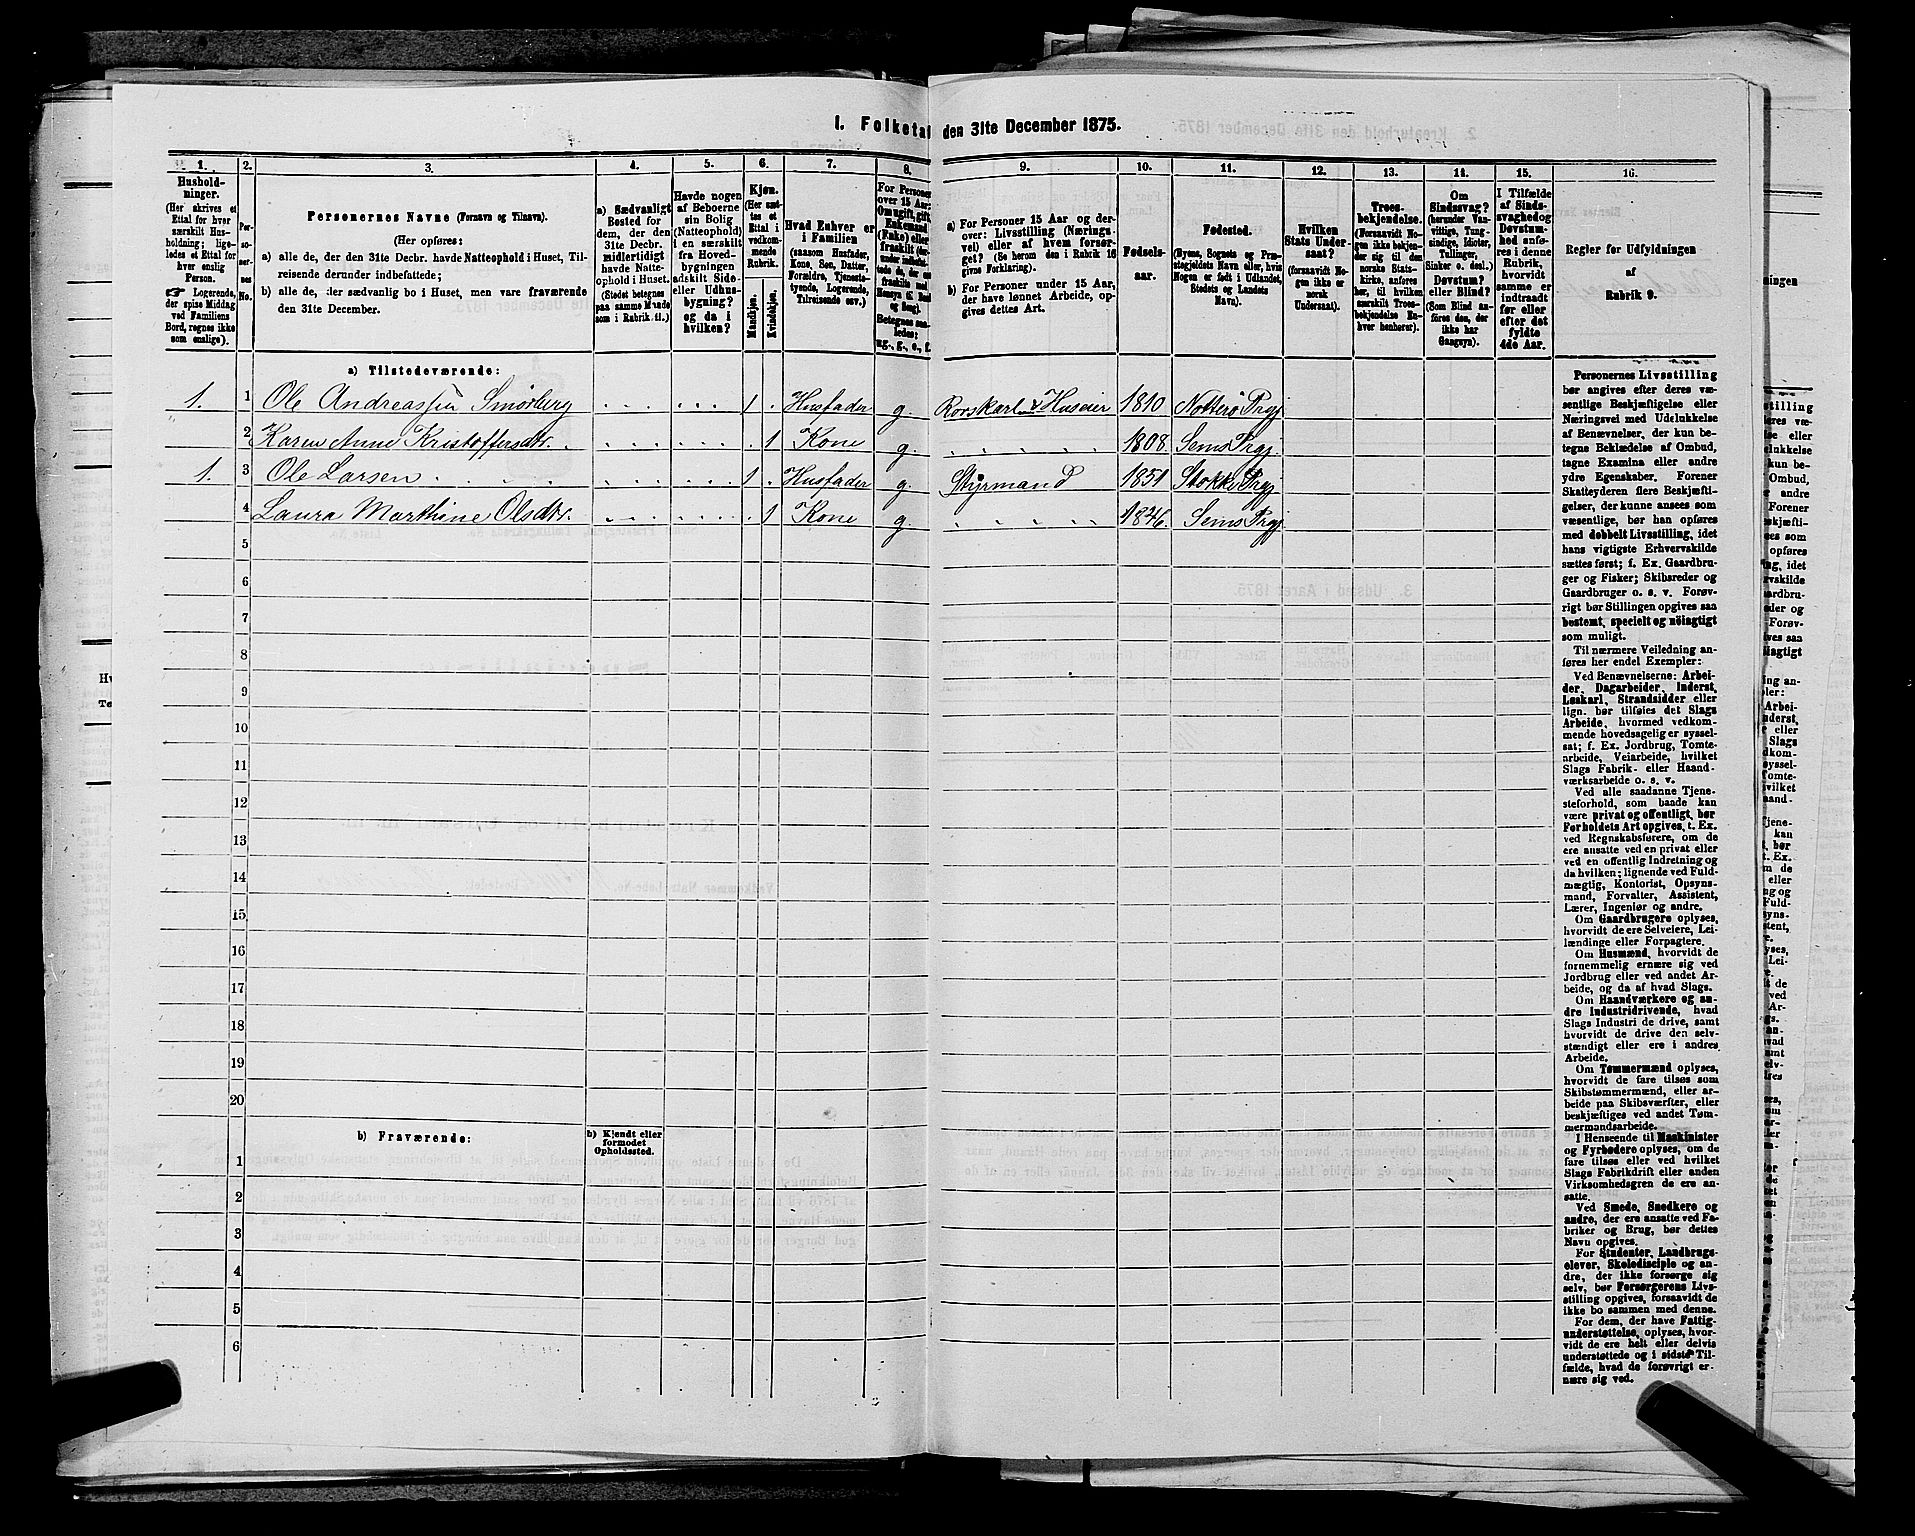 I. Folketal den 31te December 1875.
1. 2. 3. 4. 5. 6. 7. 8. 9. 10. 11. 12. 13. 14. 15. 16.
Hushold-
ninger.
(Her skrives et
Ettal for hver
særskilt Hus-
holdning; lige-
ledes et Ettal for
hver enslig
Person.
☞ Logerende,
der spise Middag
ved Familiens
Bord, regnes ikke
som enslige).
Per-
so-
ner-
nes
No.
Personernes Navne (Fornavn og Tilnavn).
(Her opføres:
a) alle de, der den 31te Decbr. havde Natteophold i Huset, Til-
reisende derunder indbefattede;
b) alle de, der sædvanlig bo i Huset, men vare fraværende
den 31te December.
a) Sædvanligt
Bosted for
dem, der den
31te Decbr.
midlertidigt
havde Natte-
ophold i Huset.
(Stedet betegnes
paa samme Maade
som i Rubrik 11.)
Havde nogen
af Beboerne
sin Bolig
(Natteophold)
i en særskilt
fra Hoved-
bygningen
adskilt Side-
eller Udhus-
bygning?
og da i
hvilken?
Kjøn.
(Her sæt-
tes et
Ettal i
vedkom-
mende
Rubrik.
Mandkjøn.
Kvindekjøn.
Hvad Enhver er
i Familien
(saasom Husfader,
Kone, Søn, Datter,
Forældre, Tjeneste-
tyende, Logerende,
Tilreisende osv.)
For Personer
over 15 Aar:
Om ugift, gift,
Enkemand
(Enke) eller
fraskilt
Betegnes saa-
ledes:
ug., g., e., f.
a) For Personer 15 Aar og der-
over: Livsstilling (Nærings-
vei) eller af hvem forsør-
get? (Se herom den i Rubrik 16
givne Forklaring).
b) For Personer under 15 Aar,
der have lønnet Arbeide, op-
gives dettes Art.
Fødsels-
aar.
Fødested.
(Byens, Sognets og Præ-
stegjeldets Navn eller, hvis
Nogen er født i Udlandet,
Stedets og Landets
Navn).
Hvilken
Stats Under-
saat?
(forsaavidt No-
gen ikke er
norsk
Undersaat).
Troes-
bekjendelse.
(Forsaavidt No-
gen ikke bekjen-
der sig til den
norske Stats-
kirke, anføres
her, til hvilken
særskilt Troes-
bekjendelse En-
hver henhører).
Om
Sindssvag?
(herunder Van-
vittige, Tung-
sindige, Idioter,
Tullinger,
Sinker o. desl.)
Døvstum?
eller Blind?
(Som Blind an-
føres den, der
ikke har
Gangsyn).
I Tilfælde
af Sinds-
svaghed og
Døvstum-
hed anfø-
res i denne
Rubrik,
hvorvidt
samme er
indtraadt
før eller
efter det
fyldte
4de Aar.
Regler for Udfyldningen
af
Rubrik 9.
a) Tilstedeværende:
1. 1 Ole Andreassen Smørberg 1 Husfader g. Rorskarl & Huseier 1810 Nøtterø Prgj.
2 Karen Anne Kristoffersdtr. 1 Kone g. 1808. Sems Prgj.
1. 3 Ole Larsen 1 Husfader g. Styrmand 1851 Stokke Prgj.
4 Laura Marthine Olsdtr. 1 Kone g. 1846. Sems Prgj.
5
6
7
8
9
10
11
12
13
14
15
16
17
18
19
20
b) Fraværende:
b) Kjendt eller
formodet
Opholdssted.
1
2
3
4
5
6
Personernes Livsstilling
bør angives efter deres væ-
sentlige Beskjæftigelse eller
Næringsvei med Udelukkelse
af Benævnelser, der kun be-
tegne Beklædelse af Ombud,
tagne Examina eller andre
ydre Egenskaber. Forener
Skatteyderen flere Beskjæfti-
gelser, der kunne ansees som
væsentlige, bør han opføres
med dobbelt Livsstilling, idet
hans vigtigste Erhvervskilde
sættes først; f. Ex. Gaardbru-
ger og Fisker; Skibsreder og
Gaardbruger o. s. v. Forøv-
rigt bør Stillingen opgives saa
bestemt, specielt og nöiagtigt
som muligt.
Til nærmere Veiledning an-
føres her endel Exempler:
Ved Benævnelserne: Arbei-
der, Dagarbeider, Inderst,
Løskarl, Strandsidder eller
lign. bør tilføies det Slags
Arbeide, hvormed vedkom-
mende hovedsagelig er syssel-
sat; f. Ex. Jordbrug, Tomte-
arbeide, Veiarbeide, hvilket
Slags Fabrik- eller Haand-
værksarbeide o. s. v.
Ved alle saadanne Tjene-
steforhold, som baade kan
være privat og offentligt, bør
Forholdets Art opgives, t. Ex.
ved Regnskabsførere, om de
ere ansatte ved en privat eller
ved en offentlig Indretning og
da hvilken; lignende ved Fuld-
mægtig, Kontorist, Opsyns-
mand, Forvalter, Assistent,
Lærer, Ingeniør og andre.
Om Gaardbrugere oplyses,
hvorvidt de ere Selveiere, Lei-
lændinge eller Forpagtere.
Om Husmænd, hvorvidt de
fornemmelig ernære sig ved
Jordbrug eller ved andet Ar-
beide, og da af hvad Slags.
Om Haandværkere og an-
dre Industridrivende, hvad
Slags Industri de drive, samt
hvorvidt de drive den selv-
stændigt eller ere i andres
Arbeide.
Om Tømmermænd oplyses,
hvorvidt de fare tilsøs som
Skibstømmermænd, eller ar-
beide paa Skibsværfter, eller
beskjæftiges ved andet Tøm-
mermandsarbeide.
I Henseende til Maskinister
og Fyrbødere oplyses, om de
fare tilsøs eller ved hvilket
Slags Fabrikdrift eller anden
Virksomhedsgren de ere an-
satte.
Ved Smede, Snedkere og
andre, der ere ansatte ved Fa-
briker og Brug, bør dettes
Navn opgives.
For Studenter, Landbrugs-
elever, Skoledisciple og an-
dre, der ikke forsørge sig
selv, bør Forsørgerens Livs-
stilling opgives, forsaavidt de
ikke bo sammen med denne.
For dem, der have Fattig-
understøttelse, oplyses, hvor-
vidt de ere helt eller delvis
understøttede og i sidste Til-
fælde, hvad de forøvrigt er-
nære sig ved.